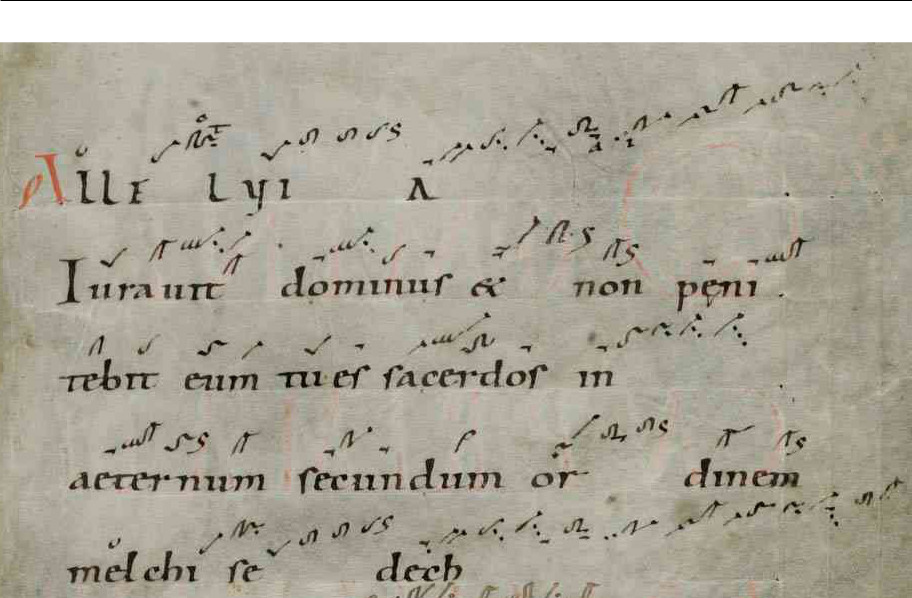 Alle lyi a
Iurauit dominus & non pęni
tebit eum tu es sacerdos in
aeternum secundum or dinem
melchi se dech